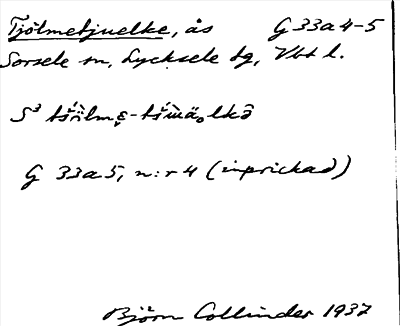 Tjålmetjuelke, ås G 33a 4-5
Sorsele sn, Lycksele tg, Vbt l.
G 33a 5, n:r 4 (inprickad)
Björn Collinder 1937